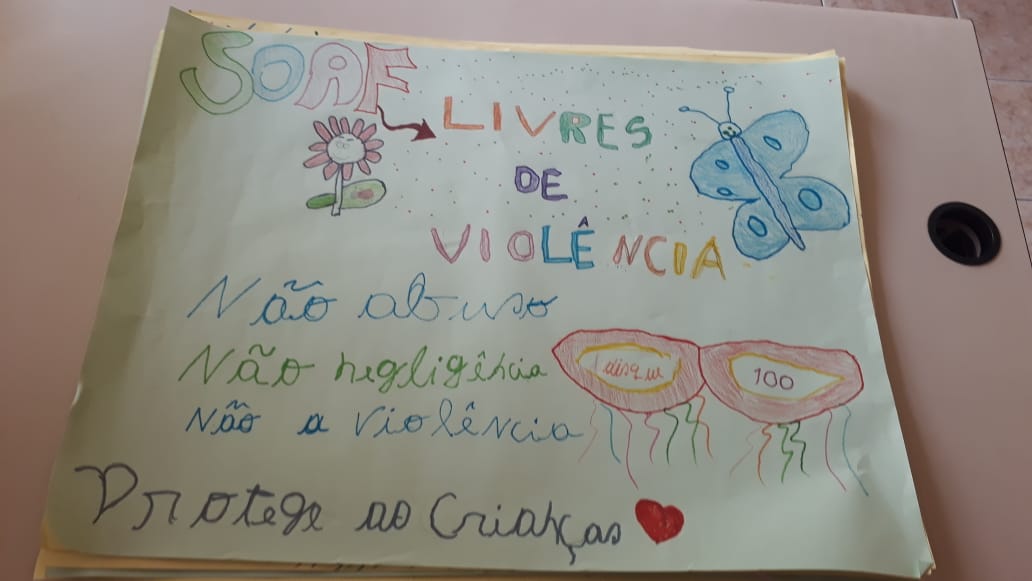 SOAF
LIVRES
DE
VIOLÊNCIA
Não abuso
Não negligência
Não a violência
disque 100
Protege ao Crianças